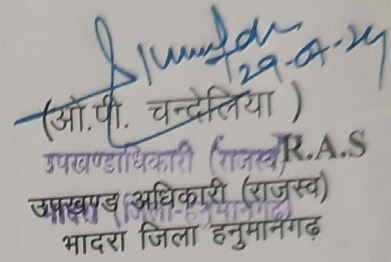 29-07-24
(ओ.पी. चन्देलिया )
उपखण्डाधिकारी (राजस्व) R.A.S
उपखण्ड अधिकारी (राजस्व)
भादरा (जिला-हनुमानगढ़)
भादरा जिला हनुमानगढ़